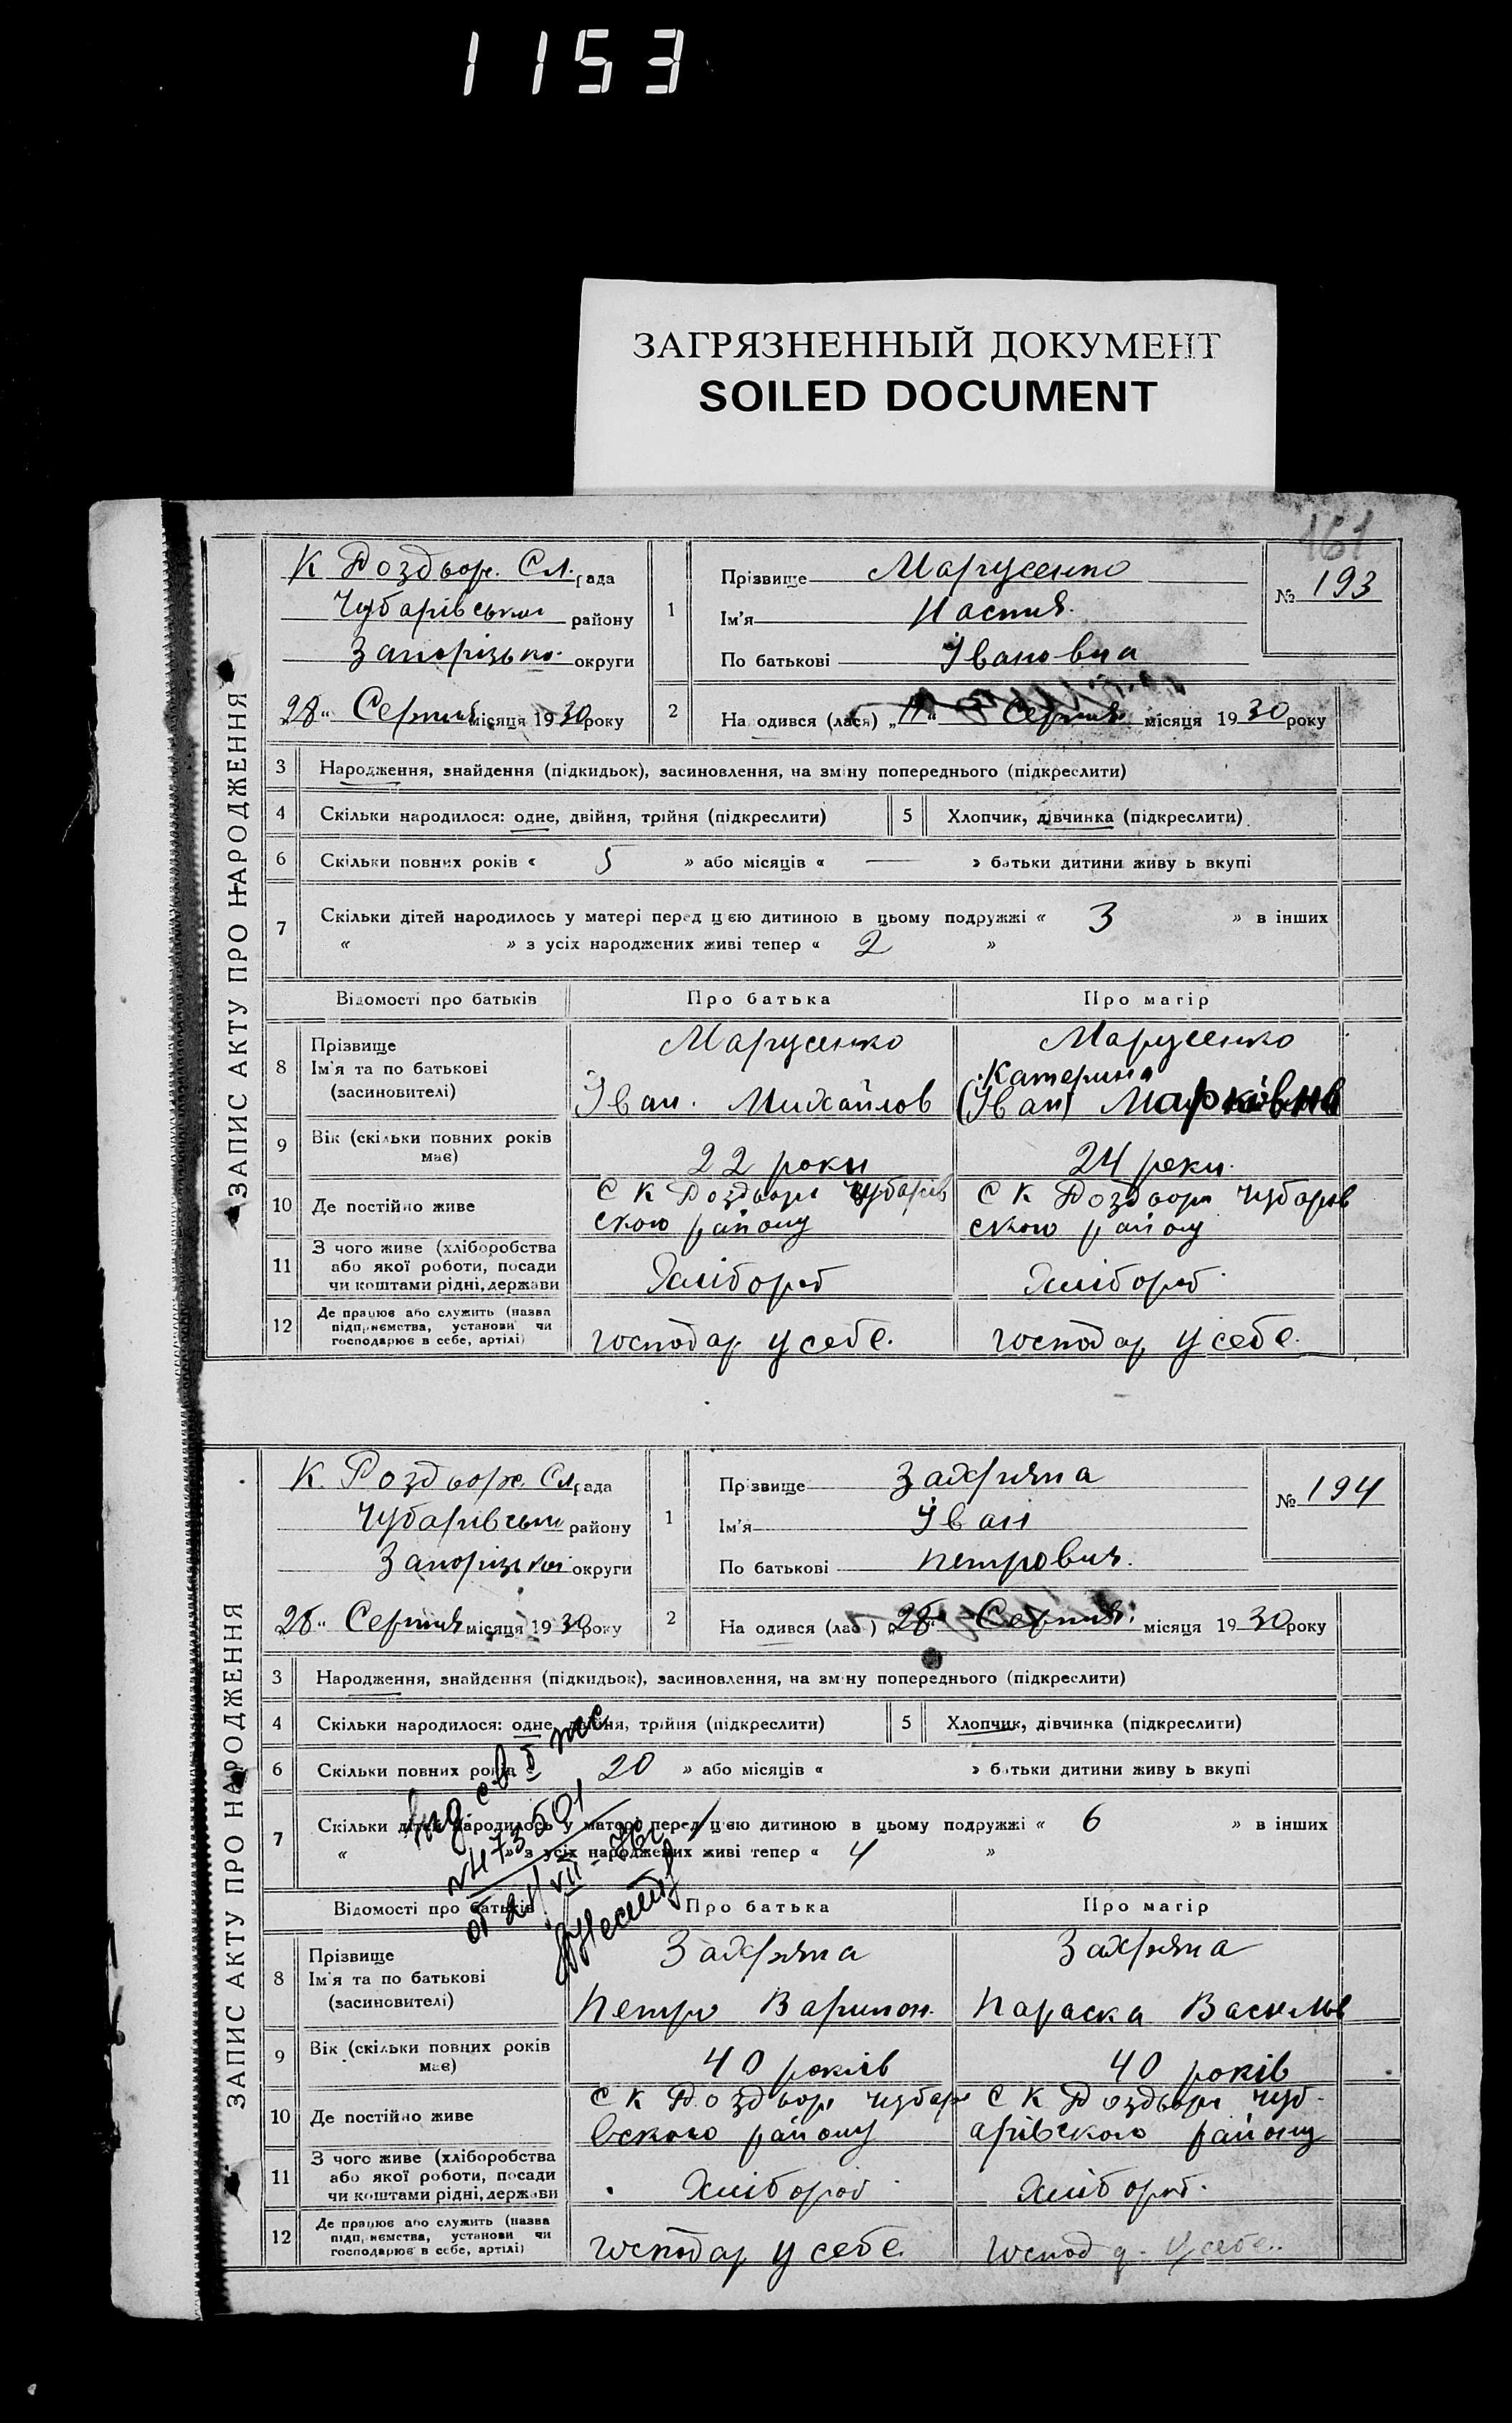 1153
ЗАГРЯЗНЕННЫЙ ДОКУМЕНТ
SOILED DOCUMENT
161
ЗАПИС АКТУ ПРО НАРОДЖЕННЯ
К Роздор. Сл. рада
Чубарівський району
Запорізько. округи
28 " Серпня місяця 1930 року
1
Прізвище Марусенко
Ім'я Настя.
По батькові Івановна
№ 193
2
На одився (лася) „ 11 " Серпня місяця 1930 року
3 Народження, знайдення (підкидьок), засиновлення, на зміну попереднього (підкреслити)
4 Скільки народилося: одне, двійня, трійня (підкреслити) 5 Хлопчик, дівчинка (підкреслити)
6 Скільки повних років « 5 » або місяців « — » батьки дитини живу ь вкупі
7 Скільки дітей народилось у матері перед цією дитиною в цьому подружжі « 3 » в інших
« » з усіх народжених живі тепер « 2 »
Відомості про батьків Про батька Про матір
8 Прізвище
Ім'я та по батькові
(засиновителі)
Марусенко
Іван. Михайлов
Марусенко
Катерина
(Іван) Марківна
9 Вік (скільки повних років має)
22 роки
24 роки.
10 Де постійно живе
С К Роздори Чубарів
ского району
С К Роздори Чубарів
ского району
11 З чого живе (хліборобства
або якої роботи, посади
чи коштами рідні, держави
Хлібороб
Хлібороб.
12 Де працює або служить (назва
підприємства, установи чи
господарює в себе, артілі)
господар у себе.
господар у себе.
ЗАПИС АКТУ ПРО НАРОДЖЕННЯ
К. Роздор. Сл. рада
Чубарівськи району
Запорізької округи
28 " Серпня місяця 1930 року
1
Прізвище Захряпа
Ім'я Іван
По батькові Петрович.
№ 194
2
На одився (лась) „ 28 " Серпня. місяця 1930 року
3 Народження, знайдення (підкидьок), засиновлення, на зміну попереднього (підкреслити)
4 Скільки народилося: одне, двійня, трійня (підкреслити) 5 Хлопчик, дівчинка (підкреслити)
6 Скільки повних років « 20 » або місяців « » батьки дитини живу ь вкупі
7 Скільки дітей народилось у матері перед цією дитиною в цьому подружжі « 6 » в інших
« » з усіх народжених живі тепер « 4 »
Відомості про батьків Про батька Про матір
8 Прізвище
Ім'я та по батькові
(засиновителі)
Захряпа
Петро Варипон.
Захряпа
Параска Васильв
9 Вік (скільки повних років має)
40 років
40 років
10 Де постійно живе
С К Роздори Чубарі
вского району
С К Роздори Чуб-
арівского району
11 З чого живе (хліборобства
або якої роботи, посади
чи коштами рідні, держави
Хлібороб
Хлібороб.
12 Де працює або служить (назва
підприємства, установи чи
господарює в себе, артілі)
господар у себе.
господ у себе.